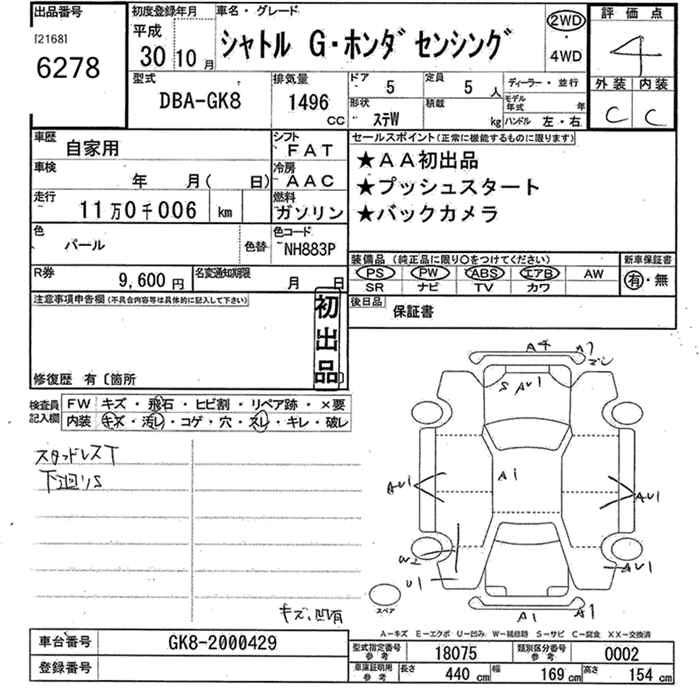 出品番号
[2168]
6278
初度登録年月
平成
30年10月
車名・グレード
シャトル G・ホンダセンシング
2WD
・
4WD
評価点
4
外装 内装
C C
型式
DBA-GK8
排気量
1496
CC
ドア
5
定員
5人
形状
ステW
積載
kg
ディーラー・並行
モデル年式 年
ハンドル 左・右
車歴
自家用
シフト
FAT
車検
年 月( 日)
冷房
AAC
走行
11万0千006 km
燃料
ガソリン
色
パール
色替
色コード
NH883P
R券
9,600円
名変通知期限
月 日
セールスポイント(正常に機能するものに限ります)
★AA初出品
★プッシュスタート
★バックカメラ
装備品 (純正品に限り○をつけてください)
PS PW ABS エアB AW
SR ナビ TV カワ
新車保証書
有・無
後日品
保証書
注意事項申告欄(不具合内容等は具体的に記入して下さい)
初出品
修復歴 有〔箇所
検査員記入欄
FW キズ・飛石・ヒビ割・リペア跡・×要
内装 キズ・汚レ・コゲ・穴・スレ・キレ・破レ
スタッドレスT
下廻りS
キズ、凹有
A4
A7
S AU1
AU1
Ai
AU1
W2
U1
AU1
A1
A1
スペア
A－キズ E－エクボ U－凹み W－補修跡 S－サビ C－腐食 XX－交換済
車台番号
GK8-2000429
登録番号
型式指定番号
参考
18075
類別区分番号
参考
0002
車庫証明用
参考
長さ 440 cm 幅 169 cm 高さ 154 cm